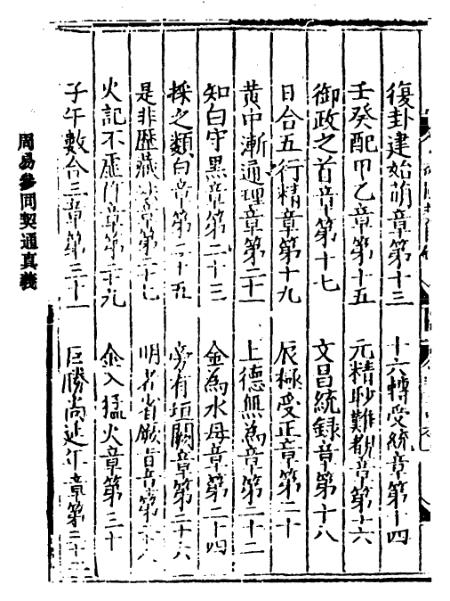 復卦建始萌章第十三　十六轉受統章第十四
壬癸配甲乙章第十五　元精眇難覩章第十六
御政之首章第十七　文昌統録章第十八
日合五行精章第十九　辰極受正章第二十
黄中漸通理章第二十一　上德無為章第二十二
知白守黑章第二十三　金為水母章第二十四
採之類白章第二十五　旁有垣闕章第二十六
是非歷藏法章第二十七　明者省厥旨章第二十八
火記不虛作章第二十九　金入猛火章第三十
子午數合三章第三十一　巨勝尚延年章第三十二
周易參同契通真義